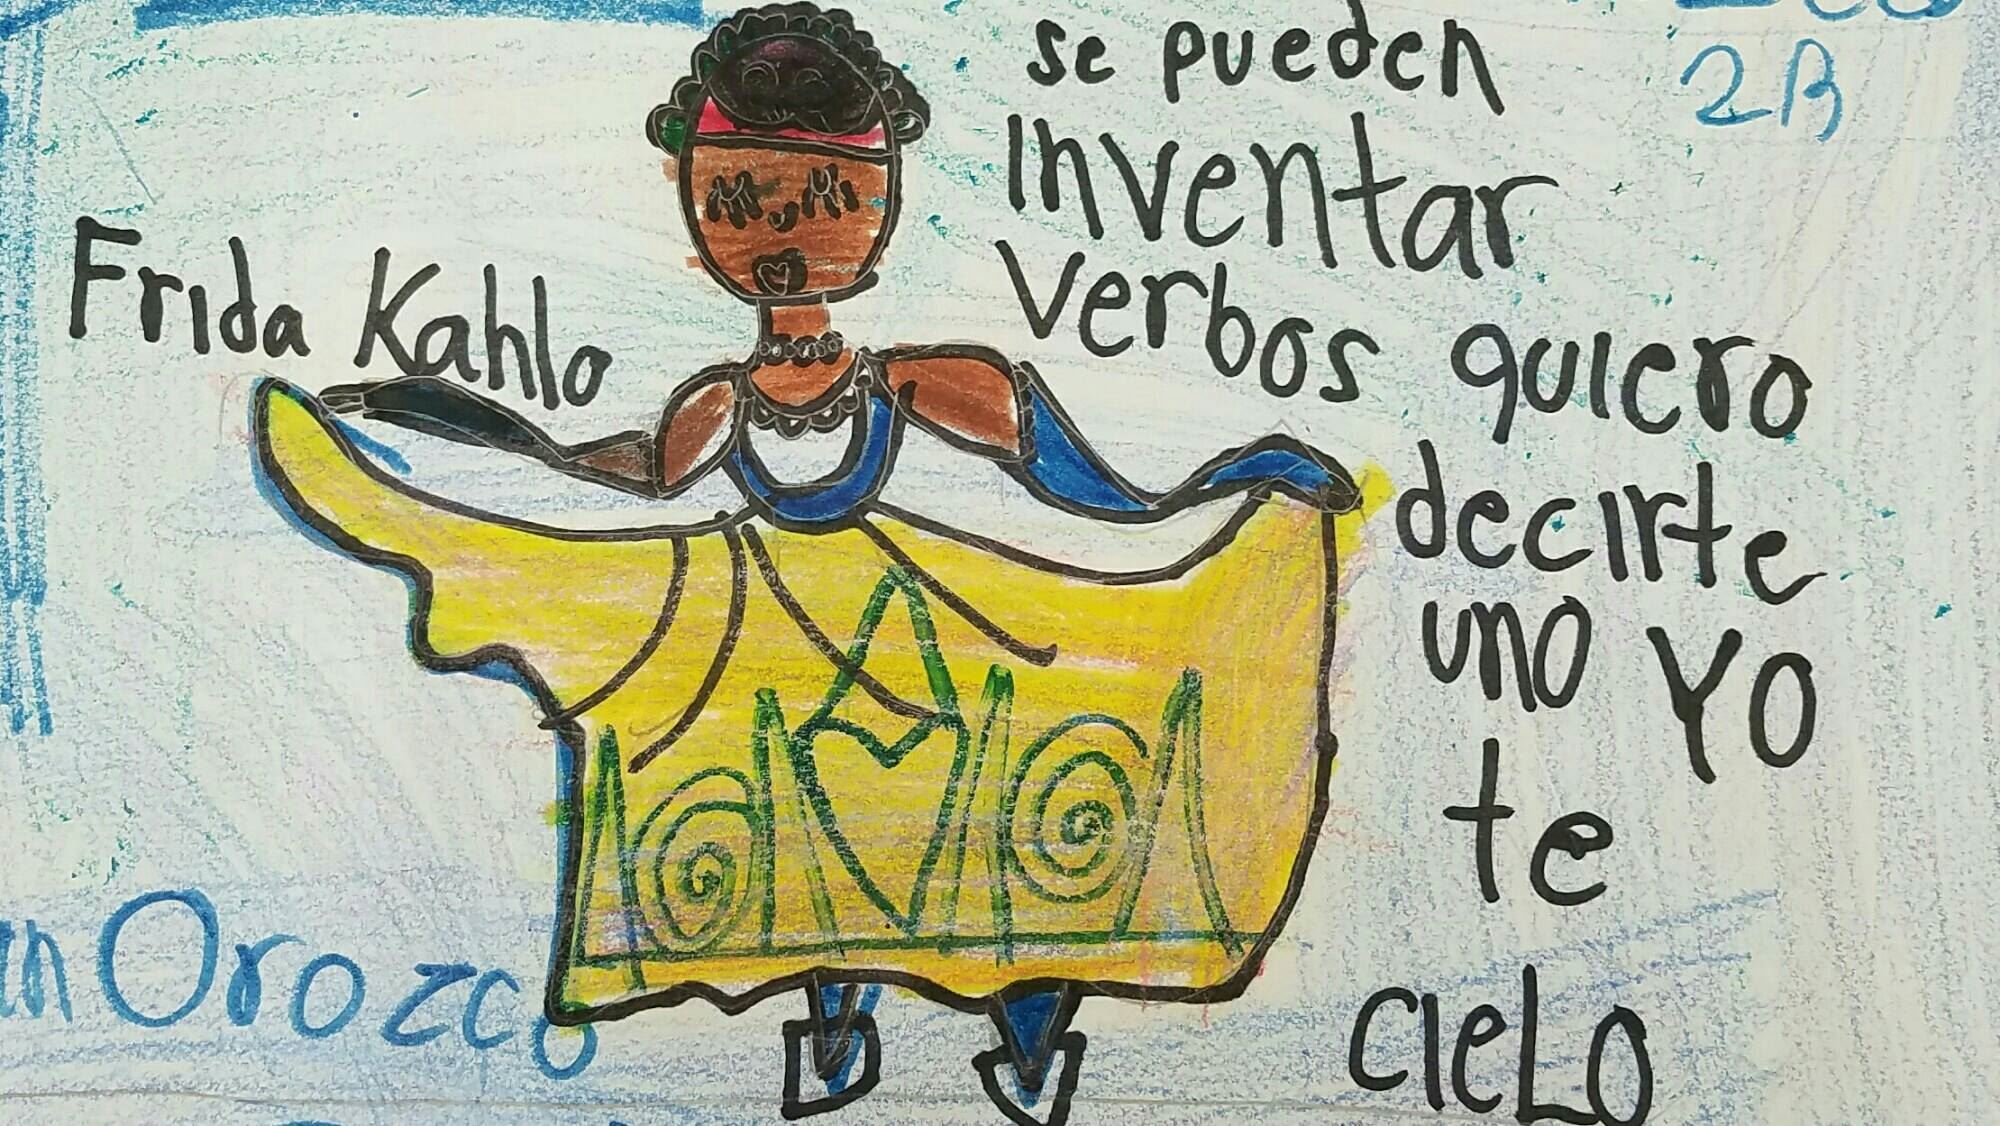 se pueden
2B
Inventar
Frida Kahlo
verbos quiero
decirte
uno Yo
te
cieLo
Orozco